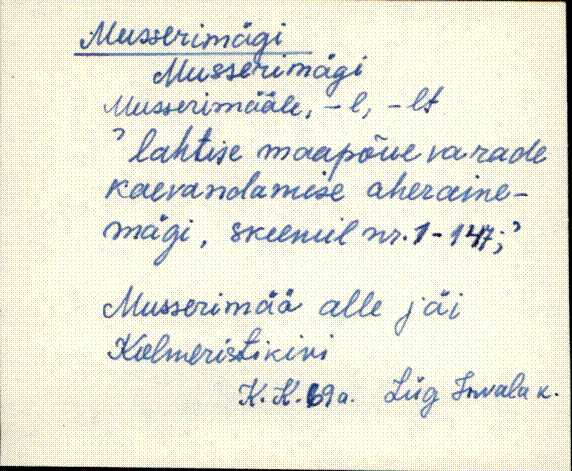 Musserimägi
Musserimägi
Musserimääle, -l, -lt
' lahtise maapõue varade
kaevandamise aheraine-
mägi, skeemil nr. 1-147;'
Musserimää alle jäi
Kolmeristikivi
K. K. 69a. Lüg